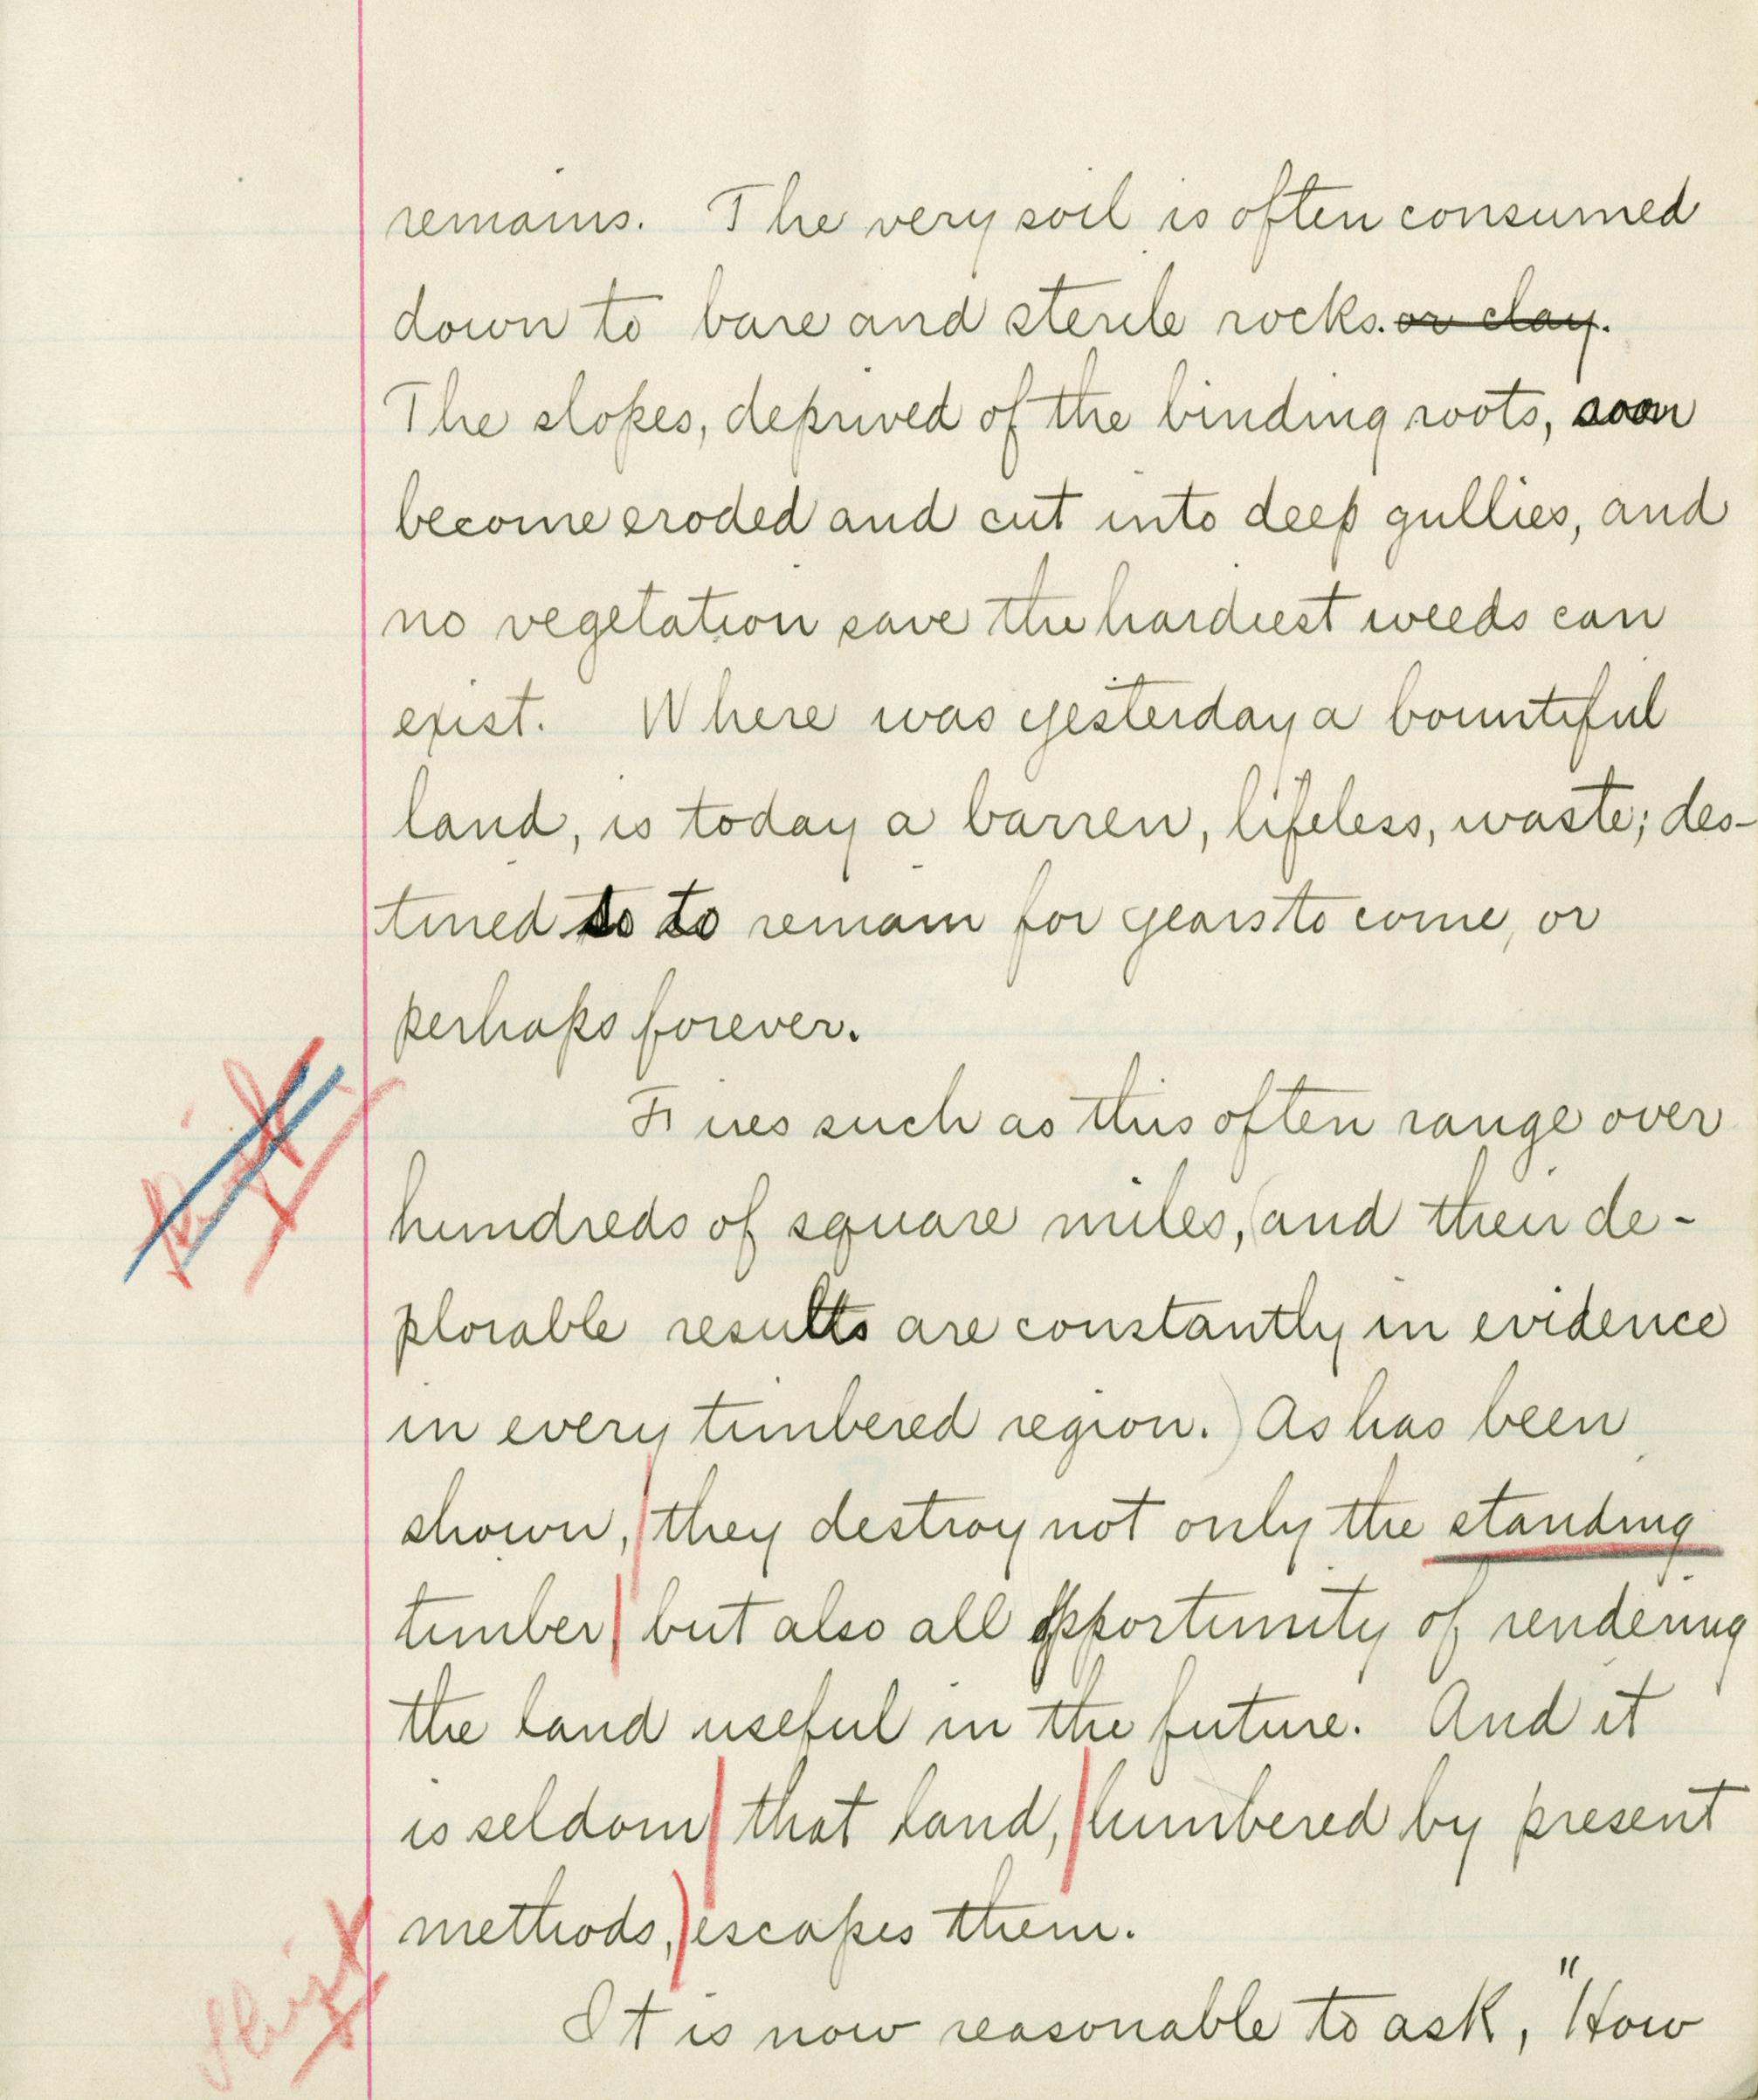 remains. The very soil is often consumed
down to bare and sterile rocks. or clay.
The slopes, deprived of the binding roots, soon
become eroded and cut into deep gullies, and
no vegetation save the hardiest weeds can
exist. Where was yesterday a bountiful
land, is today a barren, lifeless, waste; des-
tined so to remain for years to come, or
perhaps forever.
Fires such as this often range over
hundreds of square miles, (and their de-
plorable results are constantly in evidence
in every timbered region.) As has been
shown, they destroy not only the standing
timber but also all opportunity of rendering
the land useful in the future. And it
is seldom that land, lumbered by present
methods, escapes them.
It is now reasonable to ask, "How